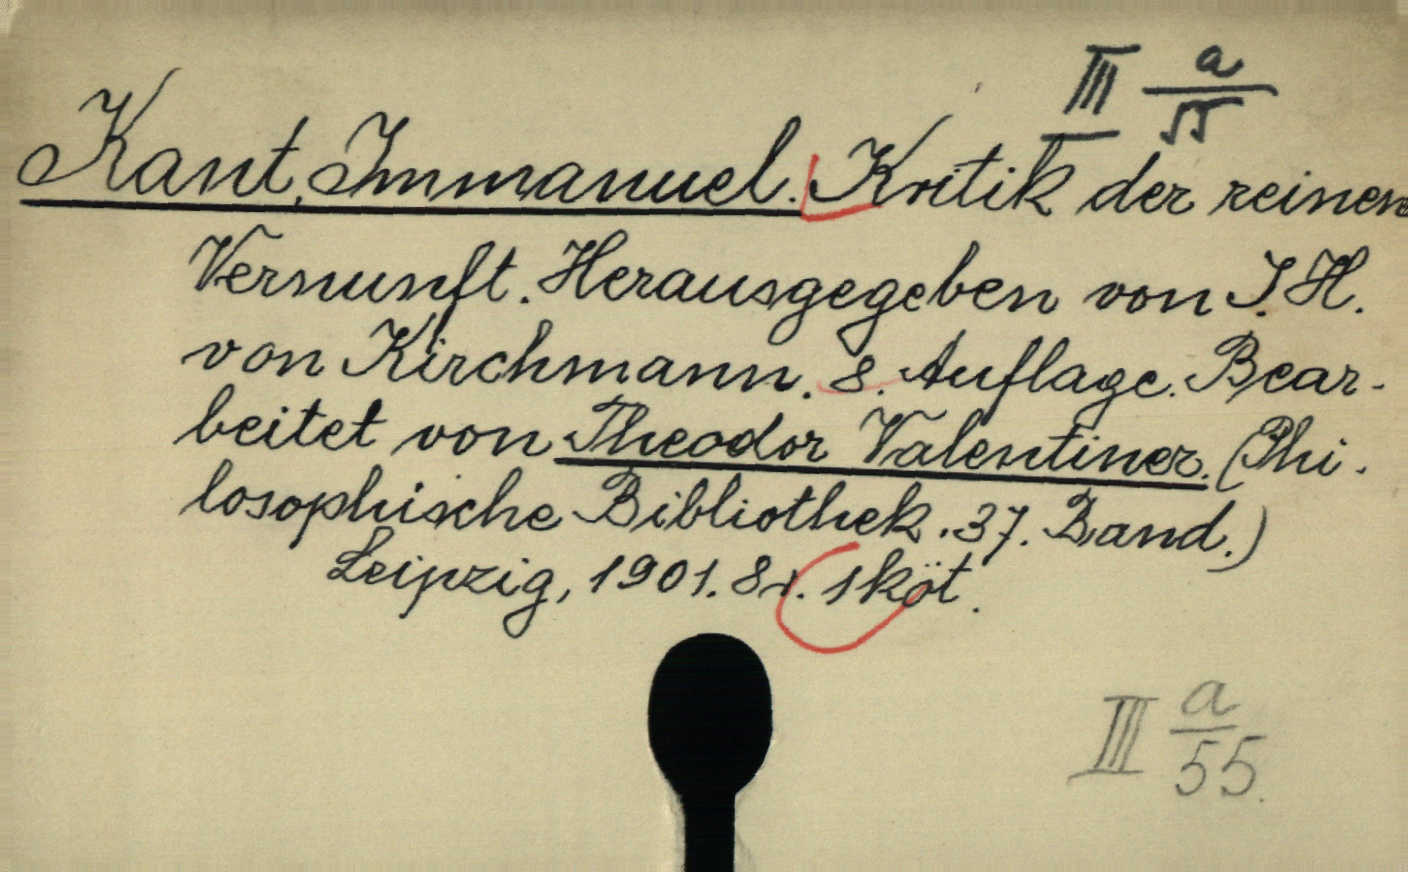 III a/55
Kant, Immanuel. Kritik der reinen
Vernunft. Herausgegeben von J. H.
von Kirchmann. 8. Auflage. Bear-
beitet von Theodor Valentiner. (Phi-
losophische Bibliothek. 37. Band.)
Leipzig, 1901. 8r. 1 köt.
III a/55.